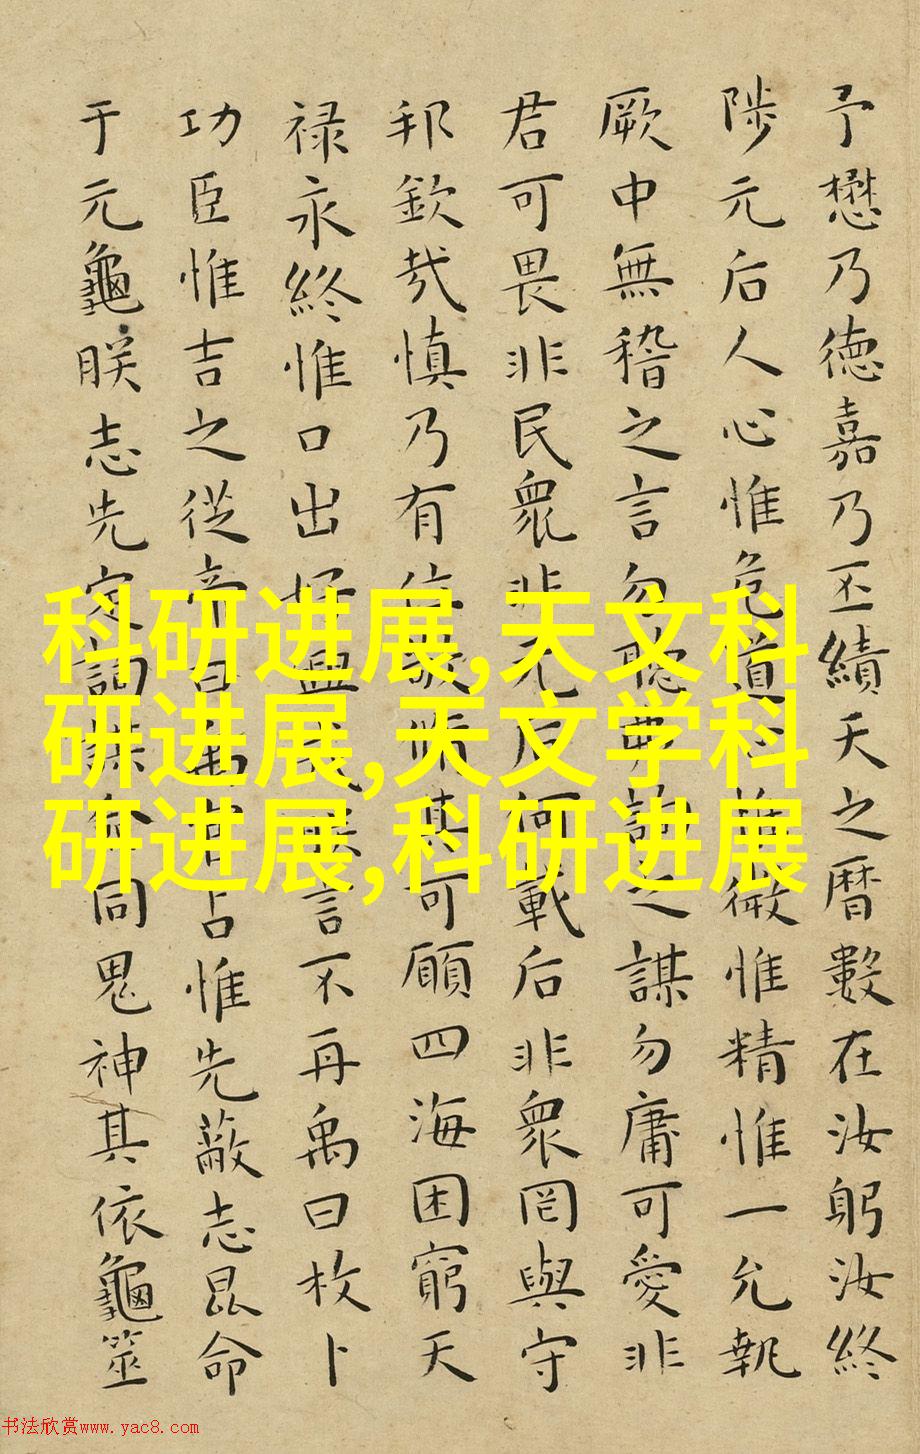 予懋乃德嘉乃丕績天之曆數在汝躬汝終
陟元后人心惟危道心惟微惟精惟一允執
厥中無稽之言勿聽弗詢之謀勿庸可愛非
君可畏非民衆非元后何戴后非衆罔與守
邦欽哉慎乃有位敬脩其可願四海困窮天
禄永終惟口出好興戎朕言不再禹曰枚卜
功臣惟吉之從帝曰禹官占惟先蔽志昆命
于元龜朕志先定詢謀僉同鬼神其依龜筮
科研进展,天文科
研进展,天文学科
研进展,科研进展
书法欣赏www.yac8.com